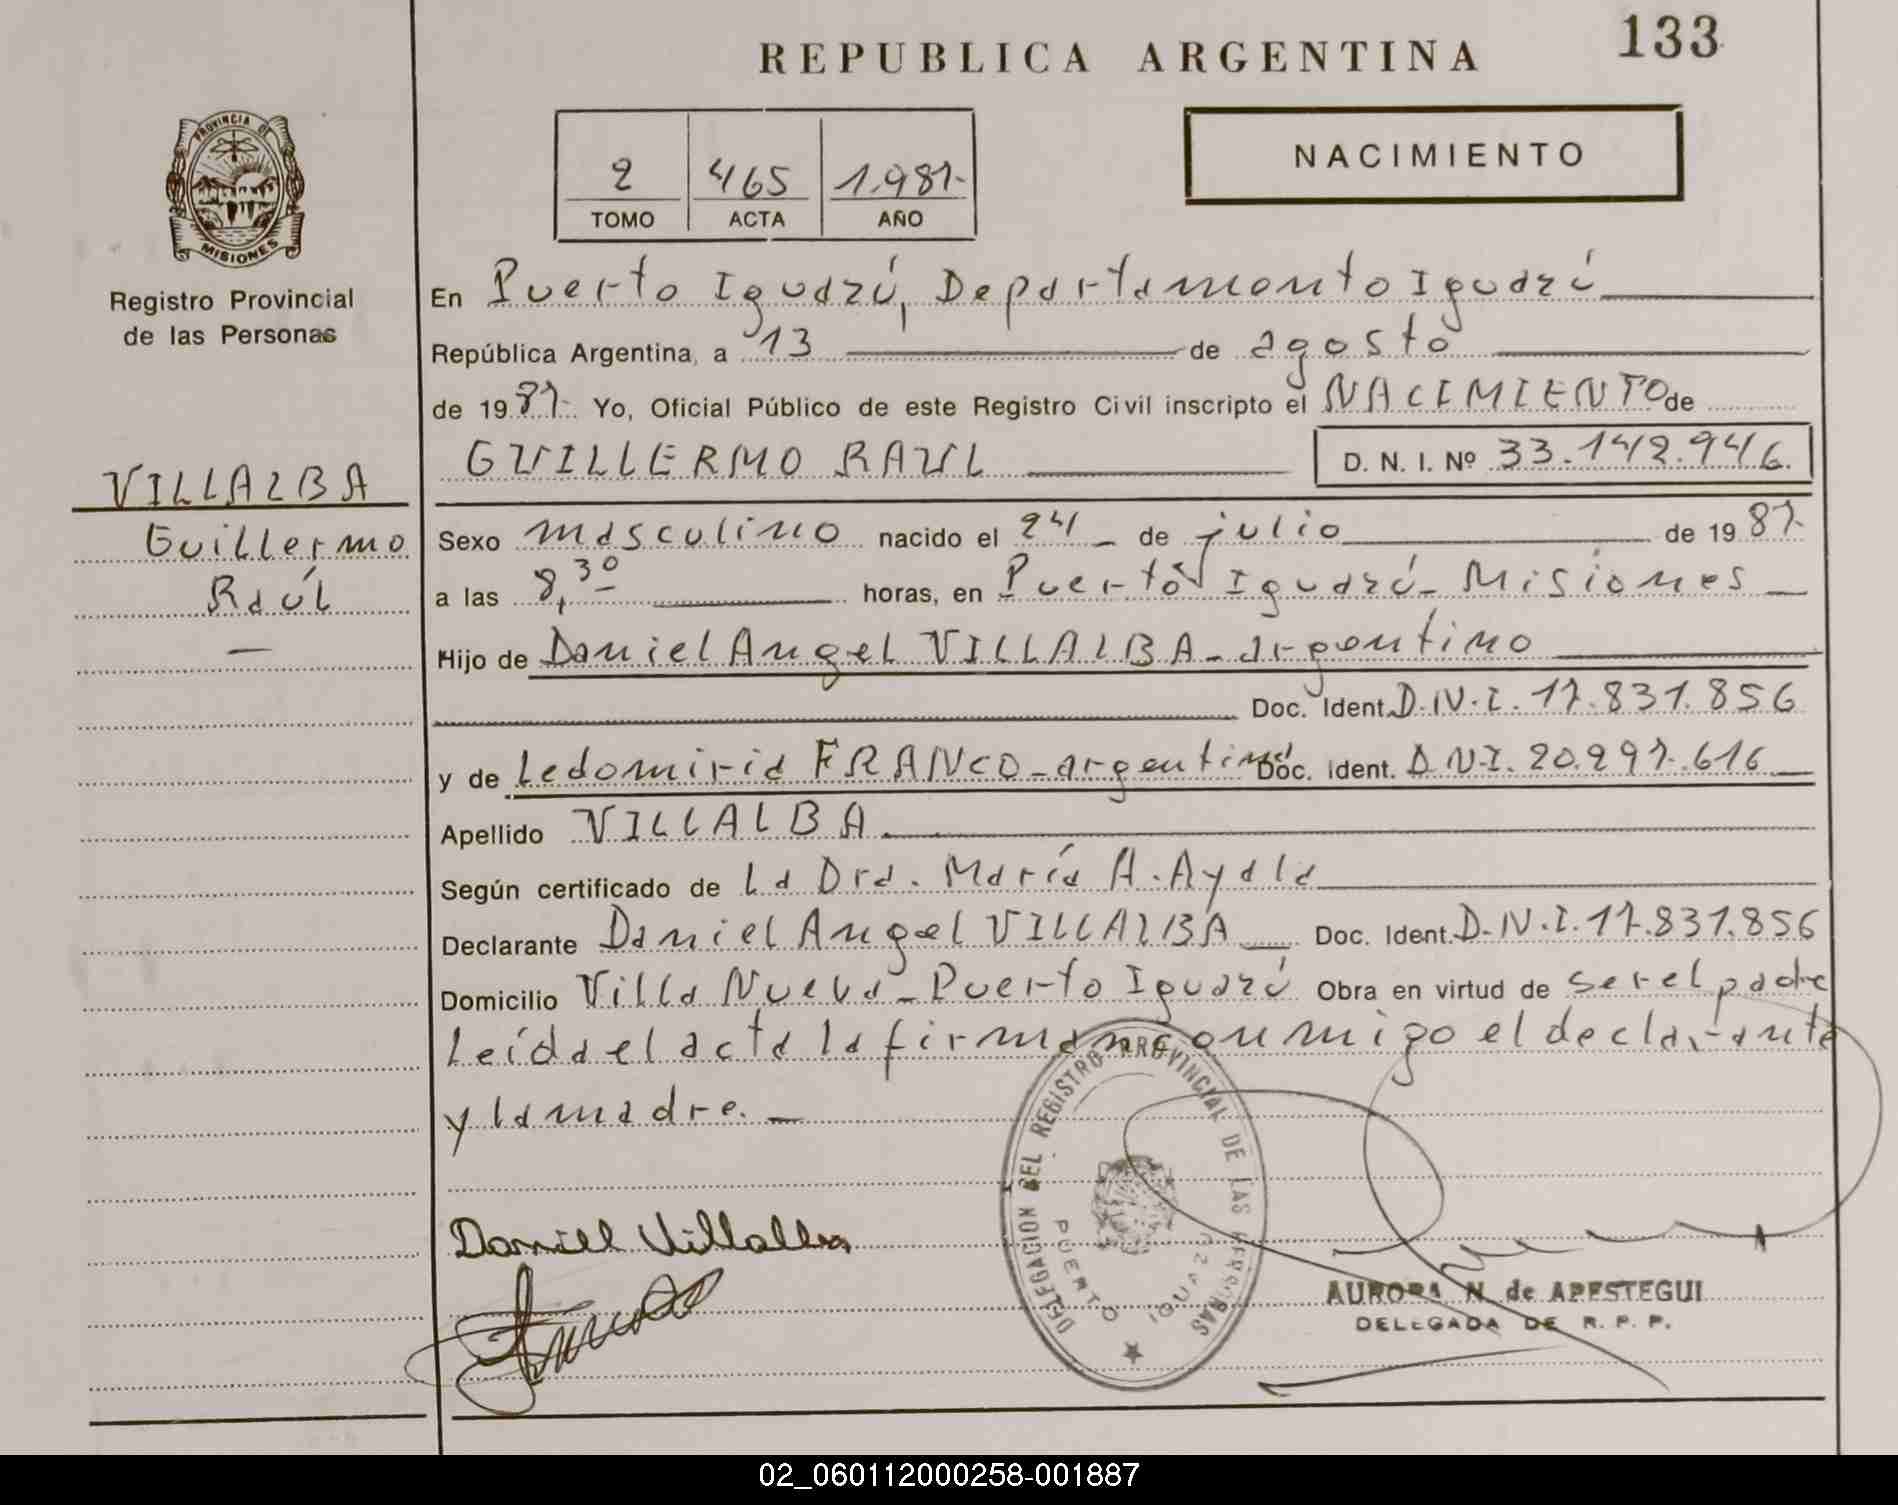 133
REPUBLICA ARGENTINA
PROVINCIA DE
MISIONES
2 465 1.987-
TOMO ACTA AÑO
NACIMIENTO
Registro Provincial
de las Personas
En Puerto Iguazú, Departamento Iguazú
República Argentina, a 13 de agosto
de 1987- Yo, Oficial Público de este Registro Civil inscripto el NACIMIENTO de
GUILLERMO RAUL D. N. I. Nº 33.142.946.
VILLALBA
Guillermo
Raúl
Sexo masculino nacido el 24 de julio de 1987-
a las 8,30 horas, en Puerto Iguazú- Misiones
Hijo de Daniel Angel VILLALBA - argentino
Doc. Ident. D.N.I. 17.831.856
y de Ledomiria FRANCO - argentina Doc. Ident. D.N.I. 20.297.616
Apellido VILLALBA
Según certificado de La Dra. María A. Ayala
Declarante Daniel Angel VILLALBA Doc. Ident. D.N.I. 17.831.856
Domicilio Villa Nueva - Puerto Iguazú Obra en virtud de ser el padre
Leída el acta la firman conmigo el declarante
y la madre. -
Daniel Villalba
DELEGACION DEL REGISTRO PROVINCIAL DE LAS PERSONAS
PUERTO IGUAZU
AURORA N. de APESTEGUI
DELEGADA DE R. P. P.
02_060112000258-001887